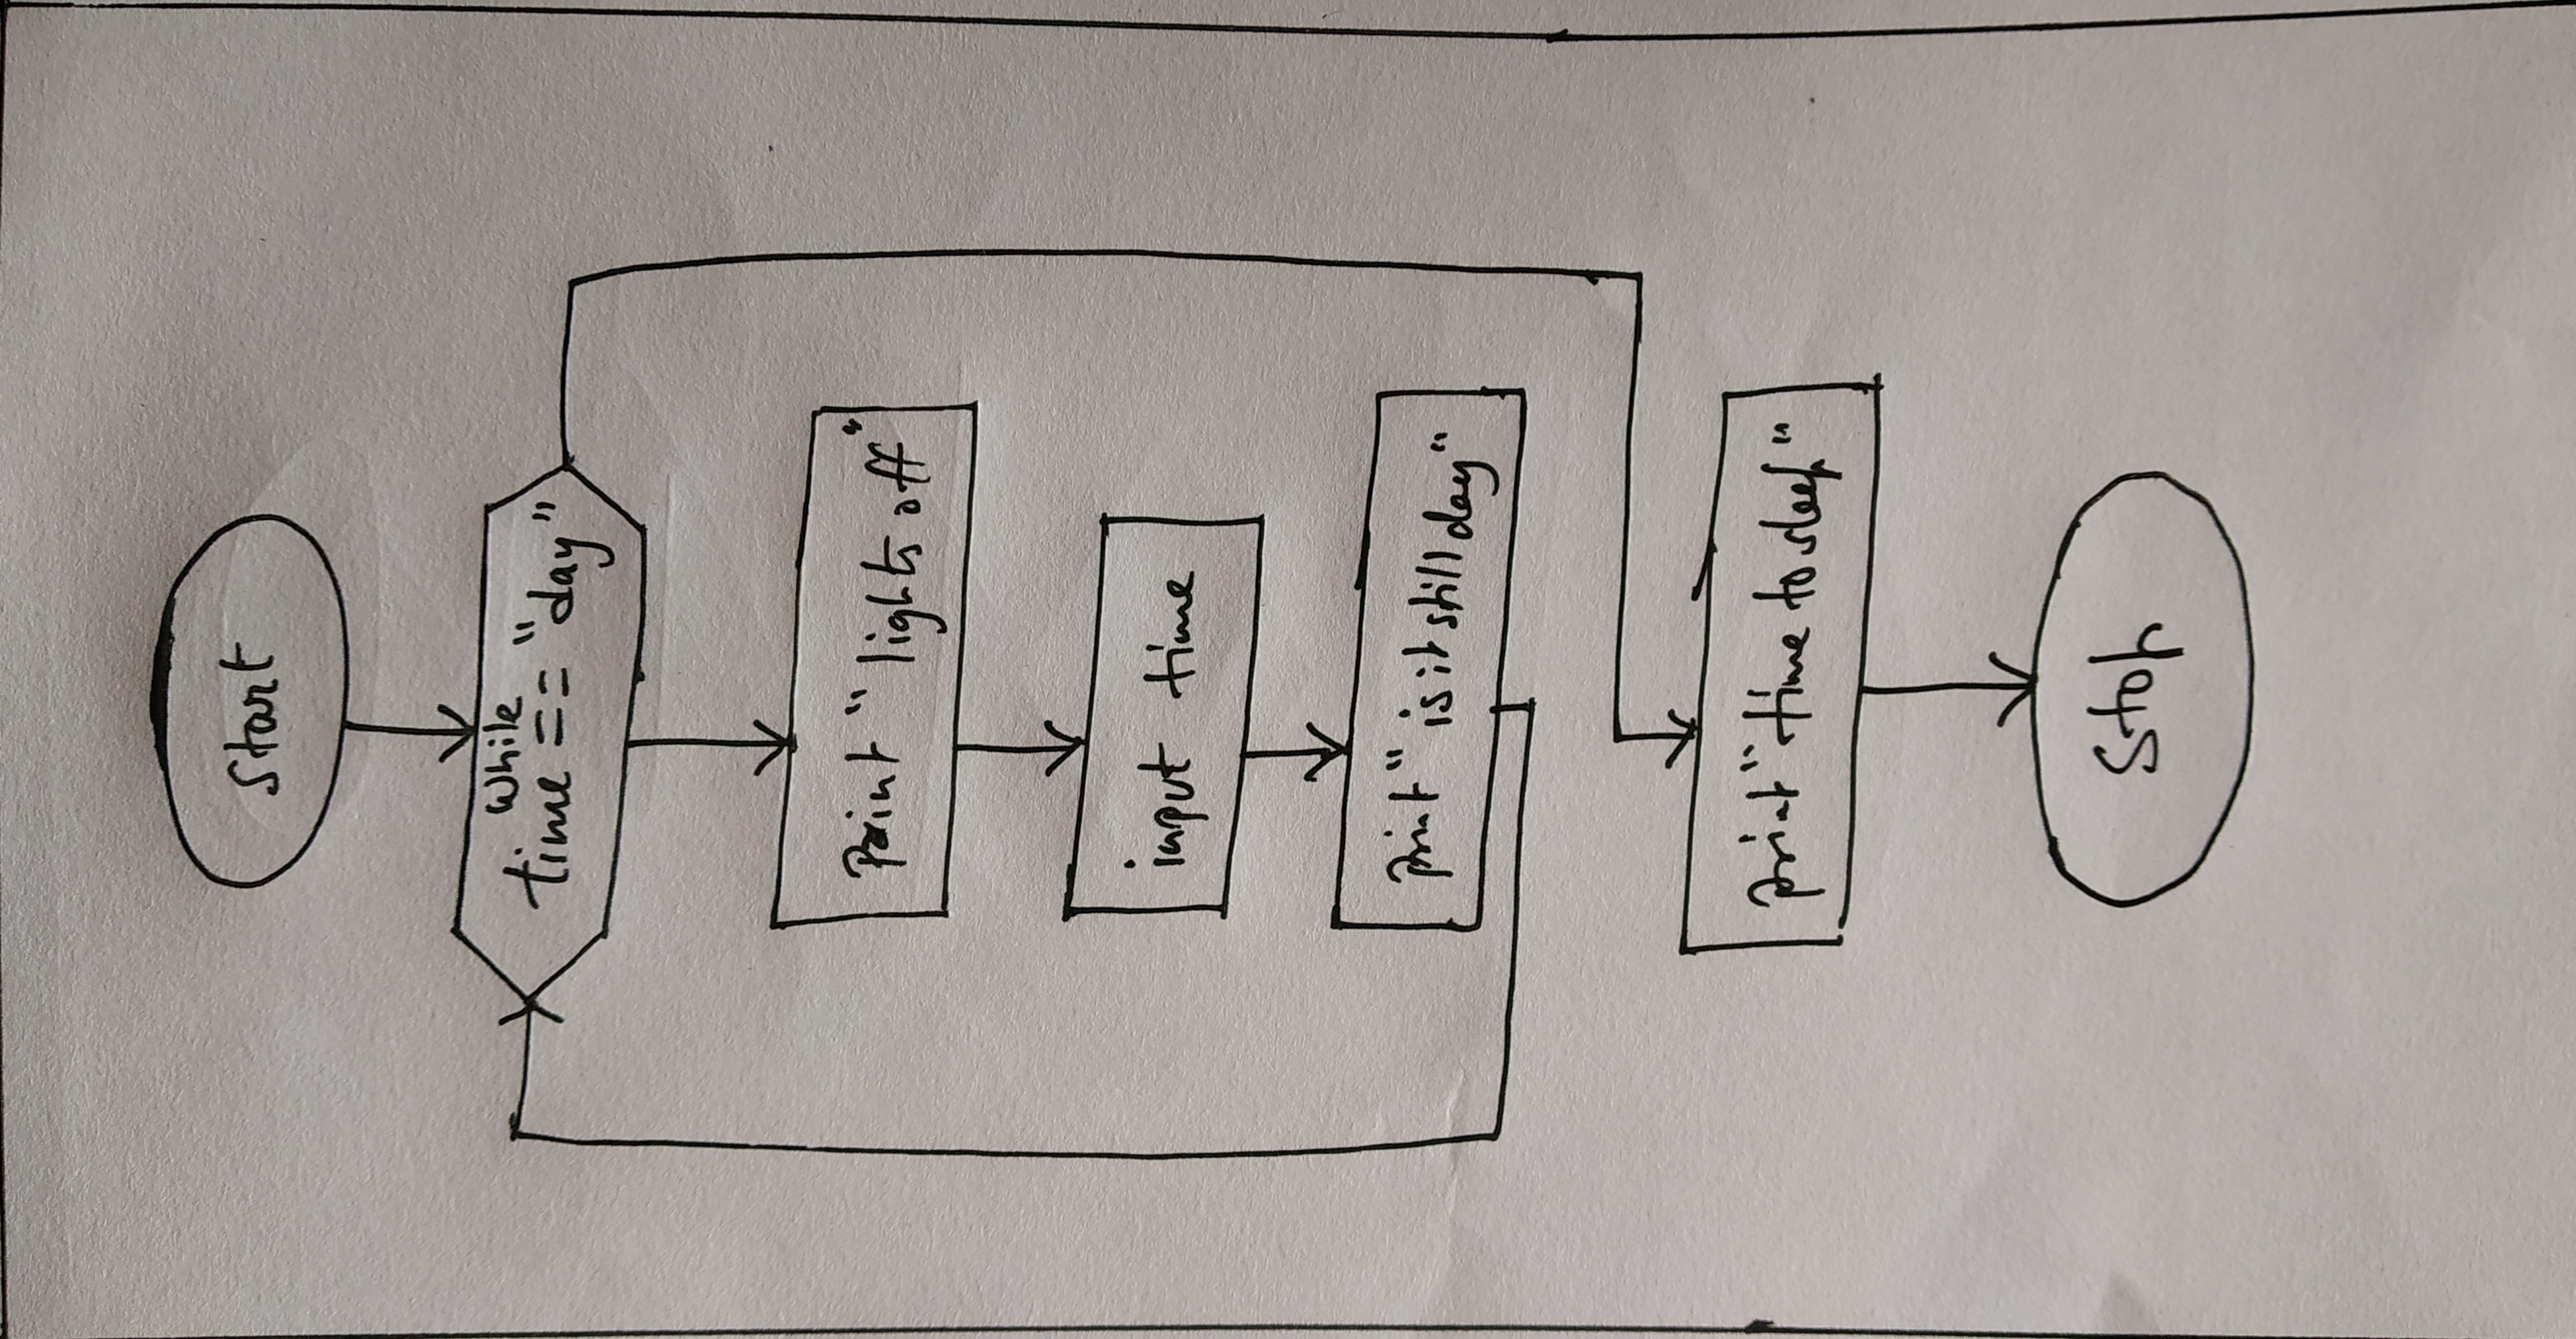 Start
While
time == "day"
Print "lights off"
input time
print "is it still day"
print "time to sleep"
Stop